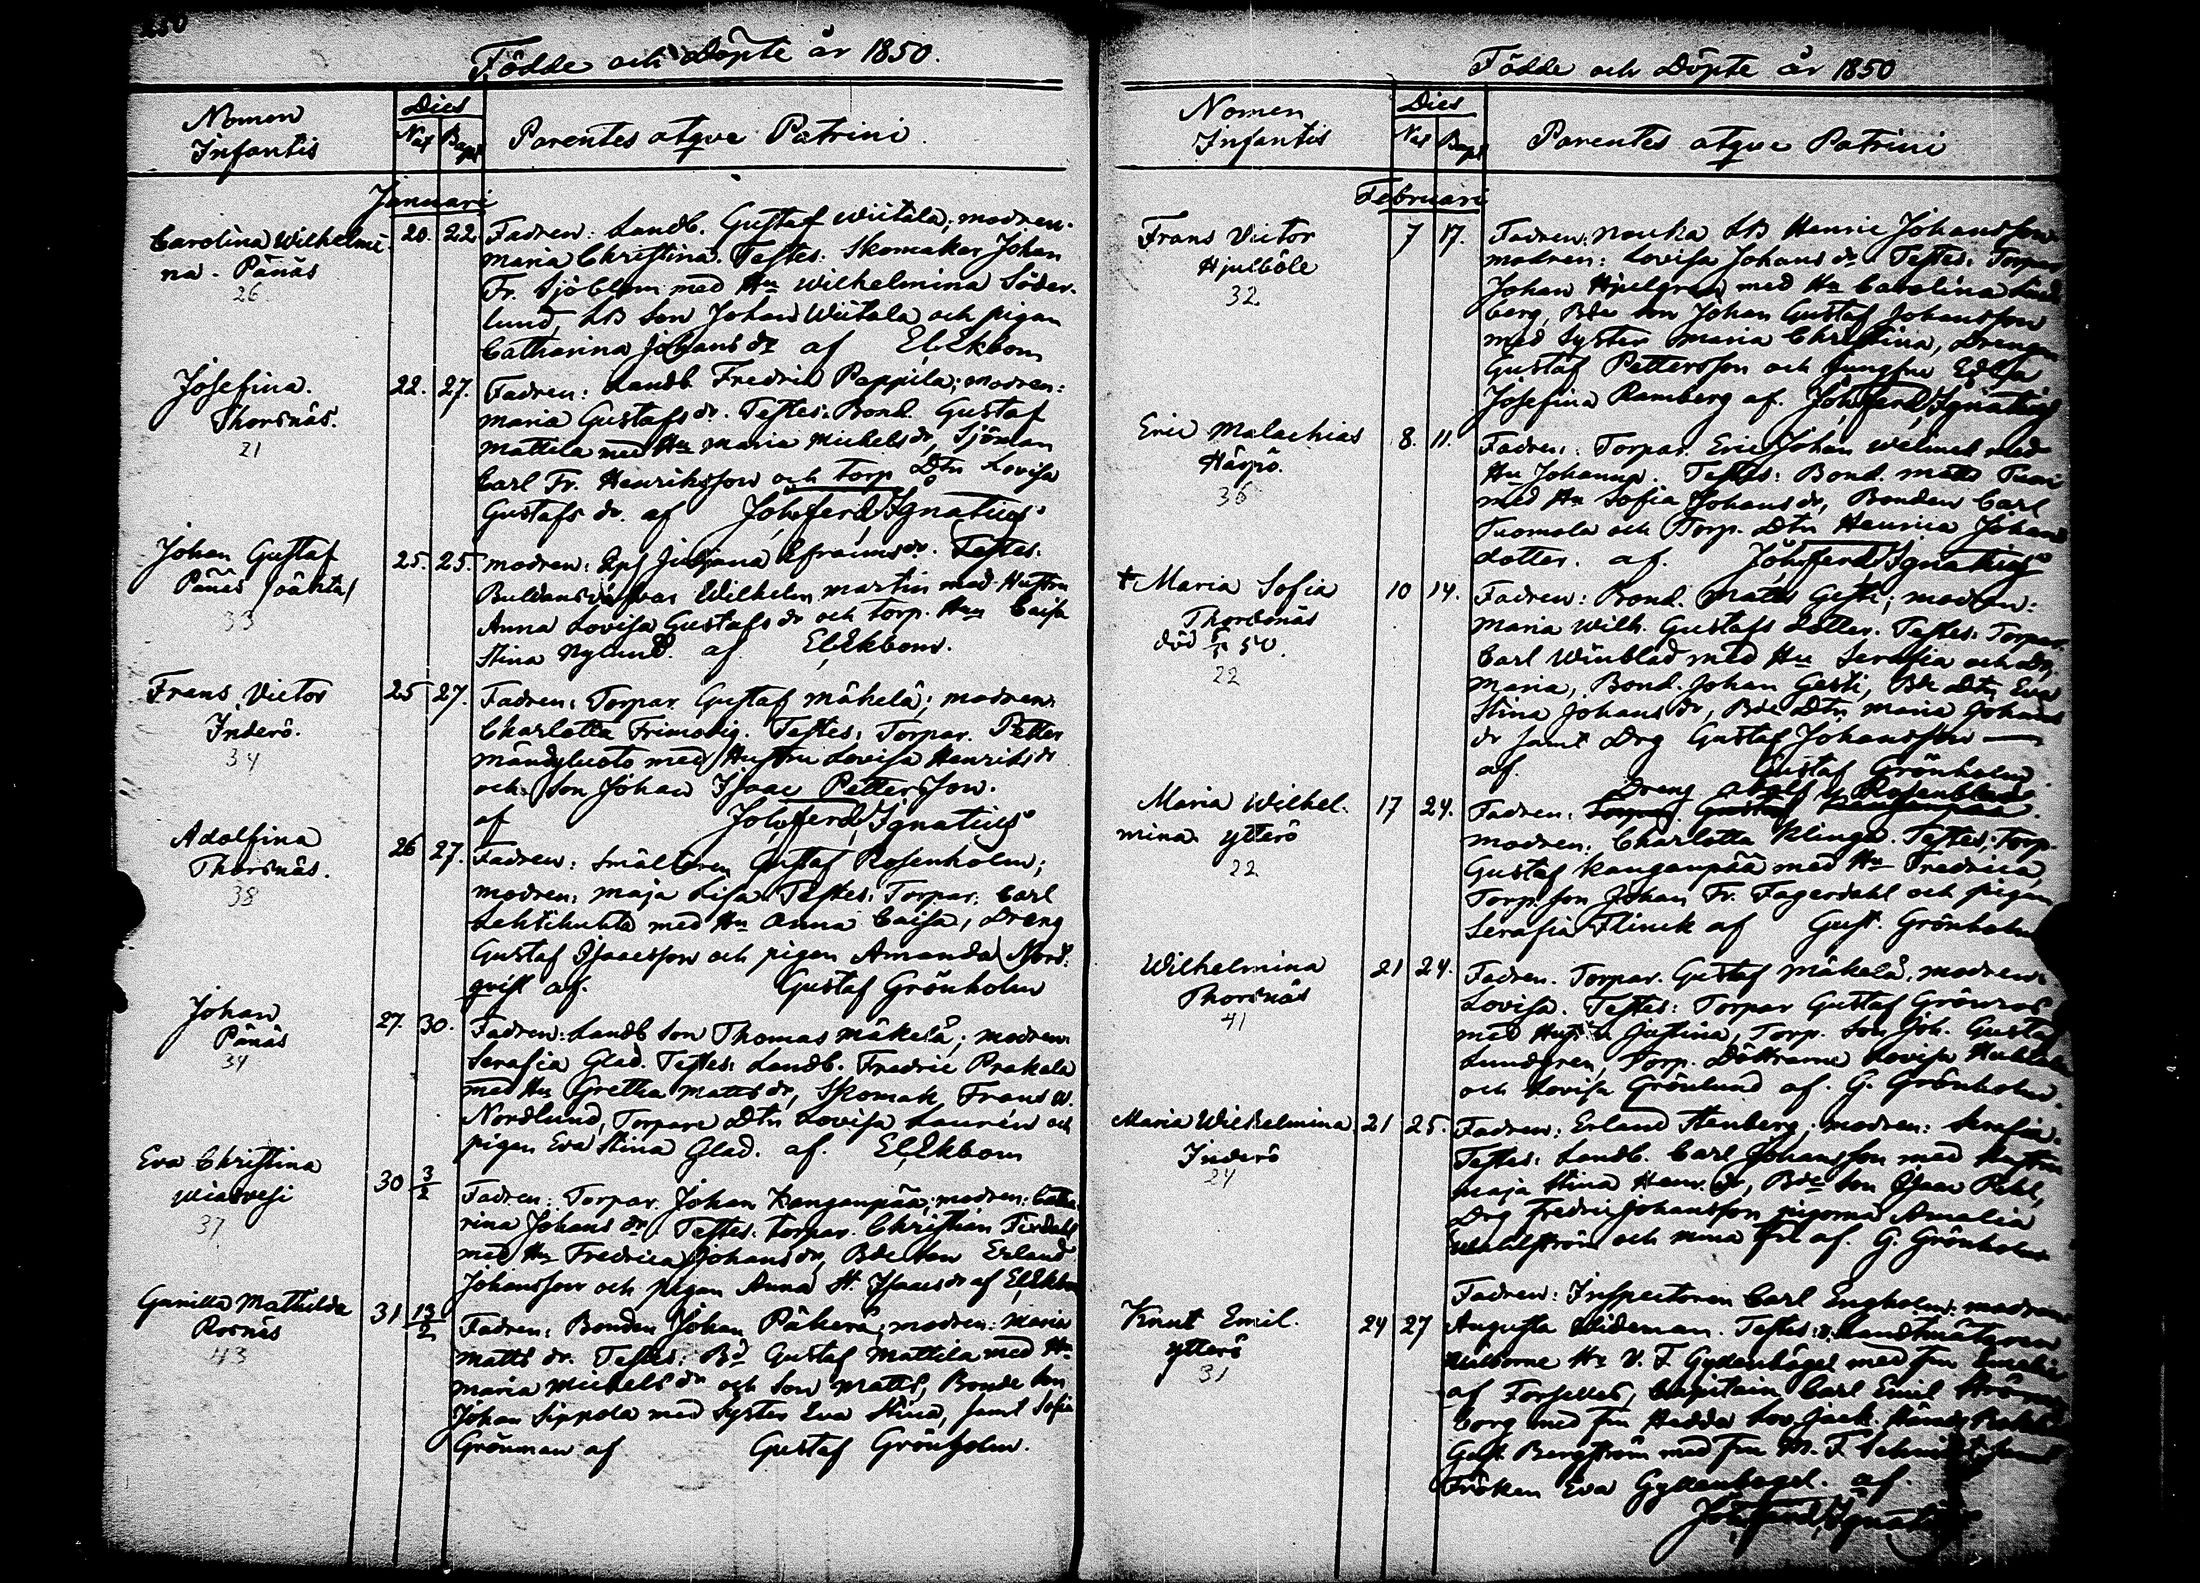 250
Födde och Döpte år 1850.
Nomen
Infantis
Dies
Nat Bapt
Parentes atqve Patrini
Januari
Carolina Wilhelmi
na. Pänäs
26
20. 22.
Fadren: Landb. Gustaf Wiitala; modren.
Maria Christina. Testes: Skomakar Johan
Fr. Sjöblom med Hu Wilhelmina Söder-
lund, LB Son Johan Wiitala och pigan
Catharina Johans dr af El. Ekbom
Josefina.
Thorsnäs.
21
22. 27.
Fadren: Landb. Fredric Pappila; modren:
Maria Gustafs dr. Testes: Bond. Gustaf
Mattila med Hu Maria Michels dr, Sjöman
Carl Fr. Henriksson och Torp Dtn Lovisa
Gustafs dr. af Joh. Ferd. Ignatius
Johan Gustaf
Pänäs /oäkta/
33
25. 25.
modren: Juliana Efraims dr. Testes:
Wilhelm Martin med Hustru
Anna Lovisa Gustafs dr och Torp. Hu Caisa
Stina Nylund. af El. Ekbom.
Frans Victor
Inderö.
34
25 27.
Fadren: Torpar. Gustaf Mäkelä; modren:
Charlotta Frimodig. Testes: Torpar. Petter
Mändyluoto med Hustru Lovisa Henriks dr
och Son Johan Isaac Pettersson.
af Joh. Ferd. Ignatius
Adolfina
Thorsnäs.
38
26 27.
Fadren: Smältaren Gustaf Rosenholm;
modren: Maja Lisa. Testes: Torpar. Carl
Lehtihuhta med Hu Anna Caisa, Dreng
Gustaf Isaacsson och pigan Amanda Nord-
qvist af. Gustaf Grönholm
Johan
Pänäs
34
27. 30.
Fadren: Landb Son Thomas Mäkelä; modren
Serafia Glad. Testes: Landb. Fredric Prakala
med Hu Gretha Matts dr, Skomak. Frans W.
Nordlund, Torpare Dtn Lovisa Laurén och
pigan Eva Stina Glad. af. El. Ekbom
Eva Christina
Wiasvesi
37
30 3/2
Fadren: Torpar. Johan Kanganpää; modren: Catha-
rina Johans dr. Testes: Torpar. Christian
med Hu Fredrica Johans dr, Bde Son Erland
Johansson och pigan Anna St. Isaacs dr af El. Ekbom
Gunilla Mathilda
Rosnäs
43
31 13/2
Fadren: Bonden Johan Päkerä; modren: Maria
Matts dr. Testes: Bd Gustaf Mattila med Hu
Maria Michels dr och Son Matts, Bonde Son
Johan Sippola med Syster Eva Stina, samt Sofia
Grönman af Gustaf Grönholm.
Födde och Döpte år 1850
Nomen
Infantis
Dies
Nat Bapt
Parentes atqve Patrini
Februari
Frans Victor
Hjulböle
32
7 17.
Fadren: LB Henric Johansson
modren: Lovisa Johans dr Testes: Torpar.
Johan Hjelgren med Hu Carolina Lind-
berg, Bde Son Johan Gustaf Johansson
med Syster Maria Christina, Drengen
Gustaf Pettersson och Jungfru Edla
Josefina Ramberg af. Joh. Ferd. Ignatius
Eric Malachias
Härpö.
36
8. 11.
Fadren: Torpar. Eric Johan med
Hu Johanna. Testes: Bond. Matts
med Hu Sofia Johans dr, Bonden Carl
Tuomola och Torp. Dtn Henrica Johans
dotter. af. Joh. Ferd. Ignatius
+ Maria Sofia
Thorsnäs
död 50.
22
10 14.
Fadren: Bond. Matts Gesti; modren:
Maria Wilh. Gustafs dotter. Testes: Torpar.
Carl Winblad med Hu Serafia och
Maria, Bond. Johan Gesti, Bde Dtn Eva
Stina Johans dr, Bde Dtn Maria Johans
dr samt Drg Gustaf Johansson
af. Gustaf Grönholm
Maria Wilhel-
mina Ytterö
22
17 24.
Dreng Adolf W Rosenblad
Fadren: Torpar. Gustaf Kanganpää.
modren: Charlotta Klinga. Testes: Torp.
Gustaf Kanganpää med Hu Fredrica,
Torp. Son Johan Fr. Fagerdahl och pigan
Serafia Flinck af Gust. Grönholm
Wilhelmina
Thorsnäs
41
21 24.
Fadren. Torpar. Gustaf Mäkelä. modren:
Lovisa. Testes: Torpar Gustaf Grönros
med Hust. Justina, Torp. Son Joh. Gustaf
Lundgren, Torp. Döttrarne Lovisa
och Lovisa Grönlund af. G. Grönholm.
Maria Wilhelmina
Inderö
24
21 25.
Fadren: Erland Stenberg, modren: Serafia.
Testes: Landb. Carl Johansson med Hustru
Maja Stina Henr. dr, Bde Son Isaac
Drg Fredric Johansson pigorna Amalia
Wahlström och af. G. Grönholm
Knut Emil.
Ytterö
31
24 27
Fadren: Inspectoren Carl Engholm: modren
Augusta Wideman. Testes: Landtmätaren
Hr V. F. Gyldenbögel med fru
af Forselles, Capitain Carl Emil
borg med fru Hedda Lov.
Gust. Bergström med fru M. F. Schmidt samt
Fröken Eva Gyldenbögel. af.
Joh. Ferd. Ignatius